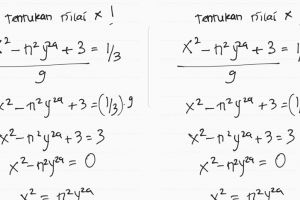 Tentukan nilai x !
x² - n²y²ᵃ + 3 = 1/3
9
x² - n²y²ᵃ + 3 = (1/3) . 9
x² - n²y²ᵃ + 3 = 3
x² - n²y²ᵃ = 0
x² = n²y²ᵃ
Tentukan nilai x
x² - n²y²ᵃ + 3 = 1
9
x² - n²y²ᵃ + 3 = (1/
x² - n²y²ᵃ + 3 = 3
x² - n²y²ᵃ = 0
x² = n²y²ᵃ